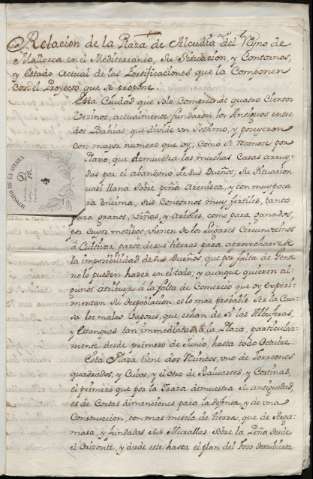 Relacion de la Plaza de Alcudia del Reyno de
Mallorca en el Mediterraneo, Su Situacion, y Contornos,
y estado actual de las Fortificaciones que la Componen
con el Proyecto que se propone.
Esta Ciudad que solo Comprende quatro Cientos
Vecinos, actualmente, fundaron los Antiguos entre
dos Bahias que divide un Isthmo, y poseyeron
con mayor numero que oy, como se reconoce por
Plano, que demuestra las muchas Casas arruy-
nadas por el abandono de sus Dueños, Su Situacion
es llana sobre peña Arenisca, y con muy poca
sus Contornos muy fertiles, tanto
para granos, viñas, y Arboles, como para ganados,
por cuyos motivos vienen de los Lugares Circunvecinos
à Cultivar parte de sus tierras para aprovecharse de
la imposibilidad de sus Dueños que por falta de
no lo pueden hacer en el todo, y aunque quieren al-
gunos atribuir à la falta de Comercio que oy experi-
mentan su despoblacion es lo mas probable sea la Cau-
sa los malos Vapores, que echan de si las Albuferas,
y Estanques tan inmediatos à la Plaza, particular-
mente desde primero de Junio, hasta todo Octubre.
Esta Plaza tiene dos recintos, uno de Torreones
quadrados, y Cubos, y el otro de Baluartes, y Cortinas,
el primero que por la traza demuestra su antiguedad,
es de Cortas dimenciones para la defensa, y de una
Construccion con mas mezcla de tierra, que de Arga-
masa, y fundadas sus Murallas sobre la Peña desde
el Orizonte, y desde este hasta el plan del foso